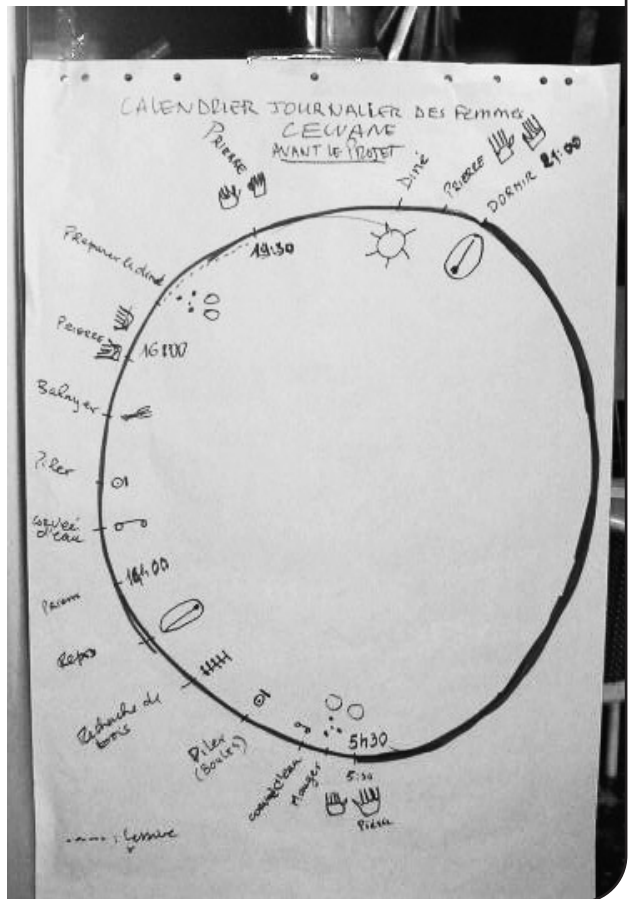 CALENDRIER JOURNALIER DES Femmes
CEWANE
AVANT LE PROJET
PRIERRE
Diné
PRIERE
DORMIR 21:00
19:30
Préparer le diné
PRIERRE
16H00
Balayer
Piler
corvée
d'eau
14h00
Repos
Recherche de
bois
Piler
(Boules)
corvée d'eau
Manger
5h30
5:30
Prière
: Lessive